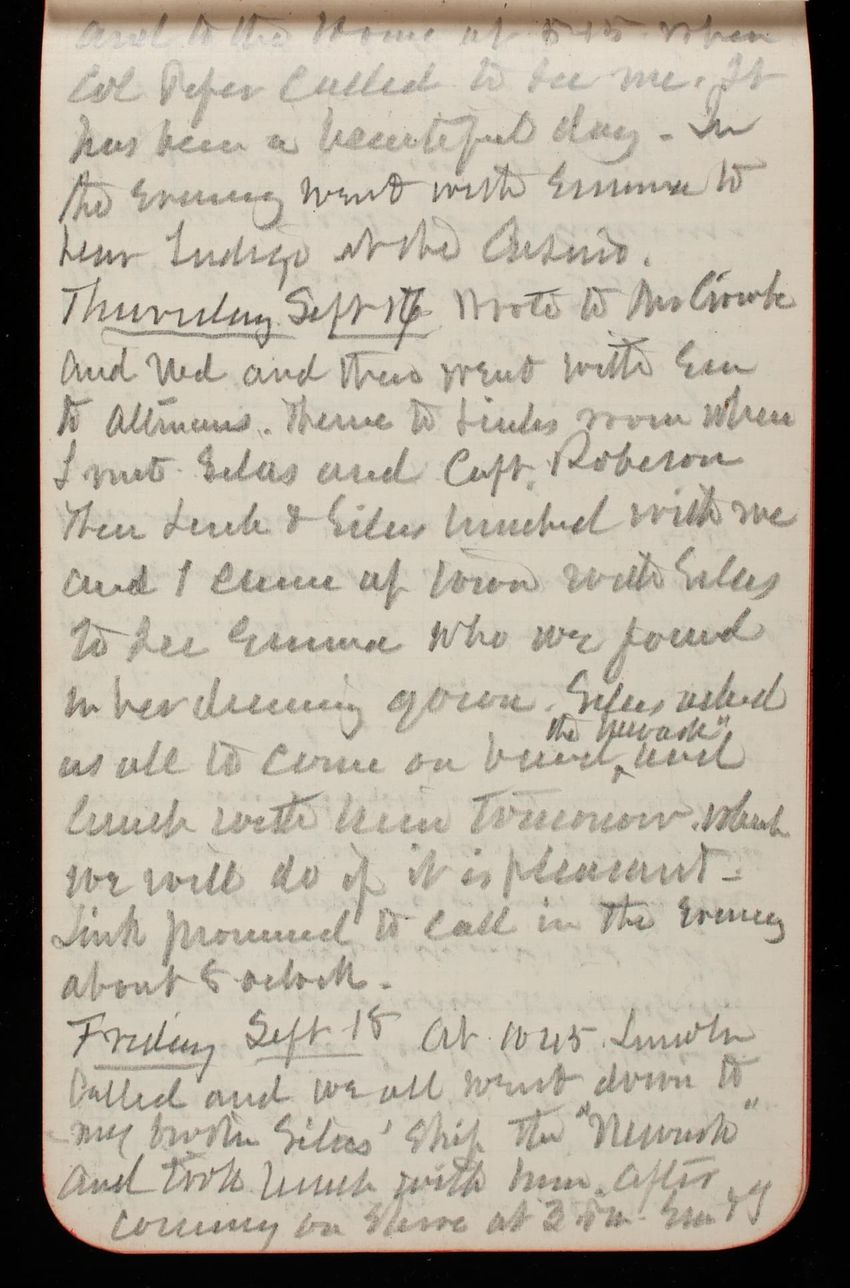 and to the Home at 5 45 when
Col Pifer called to see me. It
has been a beautiful day - In
the Evening went with Emma to
hear Indigo at the Casino.
Thursday Sept 17 Wrote to
and Ned and then went with Em
to Altmans. Thence to Links room when
I met Silas and Capt. Roberson
Then Link & Silas lunched with me
and I came up town with Silas
to see Emma who we found
in her dressing gown. Silas asked
us all to come on board "the Newark" and
lunch with him tomorrow which
we will do if it is pleasant -
Link promised to call in the Evening
about 8 oclock.
Friday Sept 18 At 10 45 Lincoln
Called and we all went down to
my brother Silas' Ship the "Newark"
and took lunch with him. After
coming on shore at 3 Em &